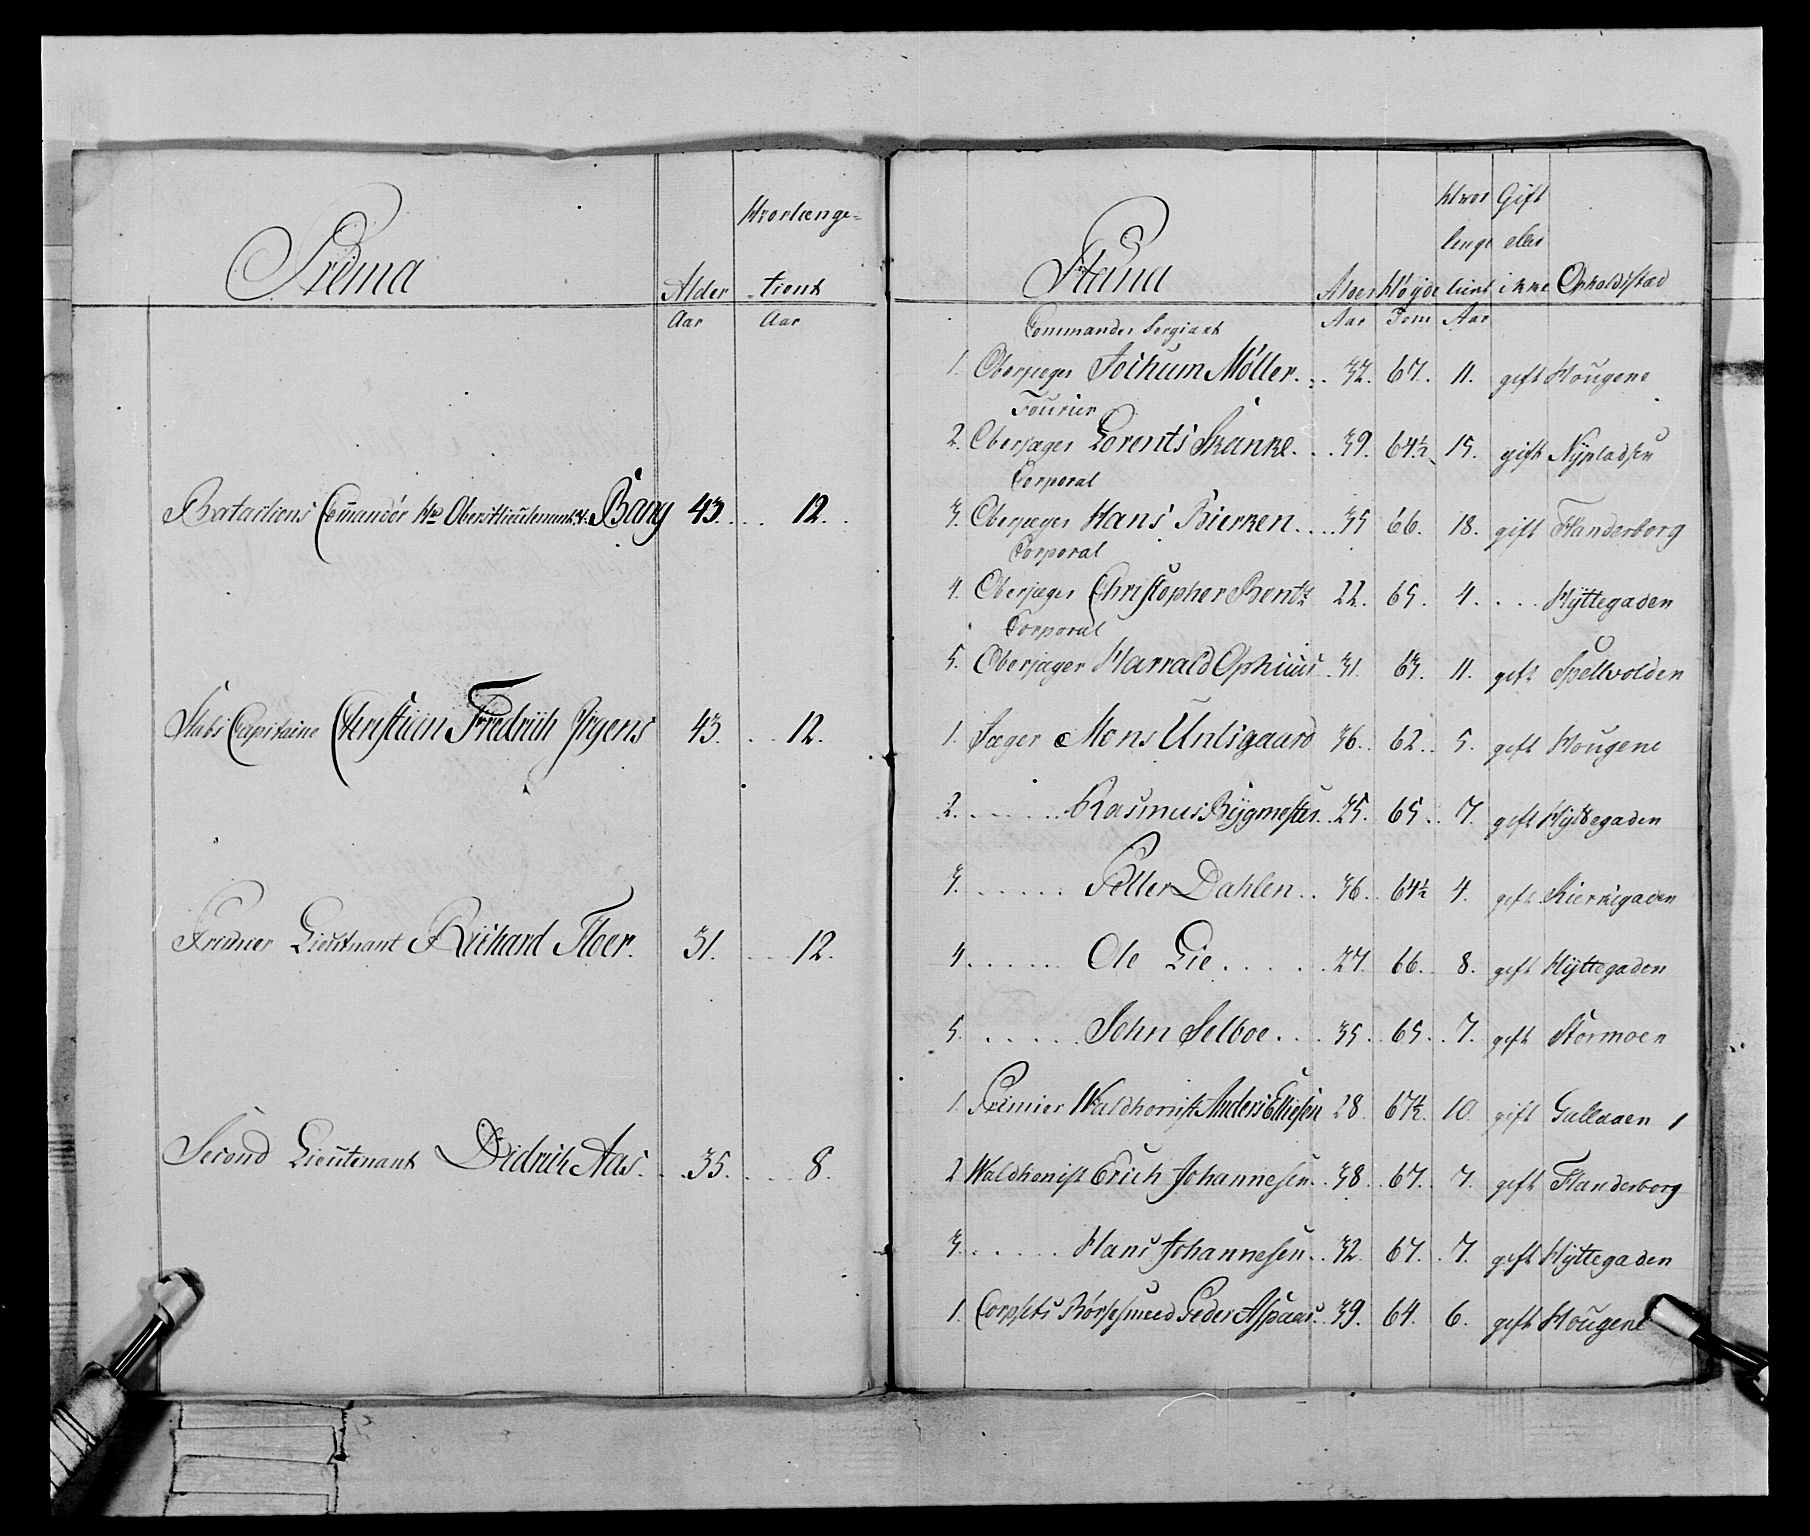 Prima
Alder
Hvorlænge
tient
Aar Aar
Batalions Comandör Hr Oberstlieutenant v: Bang 43. 12.
Stabs Capitaine Christian Fredrich Irgens 43. 12.
Premier Lieutnant Richard Floer. 31. 12.
Second Lieutenant Didrich Aas. 35. 8.
Stana
Alder Høyde
Hvor lenge tient
Gift eller ikke
Opholdstad
Aar Tom Aar
Commander Sergiant
1. Oberjæger Jochum Möller. 32. 67. 11. gift Hougene
Fourier
2. Oberjæger Lorents Skanke. 39. 64½. 15. gift Nypladsen
Corporal
3. Oberjæger Hans Bierken. 35 66. 18. gift Flanderborg
Corporal
4. Oberjæger Christopher Bentz 22. 65. 4. Hyttegaden
Corporal
5. Oberjæger Harrald Ophuus 31. 63. 11. gift Spellvolden
1. Jæger Mons Undsgaard 36. 62. 5. gift Hougene
2. Rasmus Bygmester. 25. 65. 7. gift Hyttegaden
3. Petter Dahlen. 36. 64½ 4. gift Kierkegaden
4. Ole Lie. 27. 66. 8. gift Hyttegaden
5. John Selboe. 35. 65. 7. gift Stormoen
1. Premier Waldhornist Anders Ellefsen 28. 67½. 10. gift Gallaaen 1
2 Waldhonist Erich Johannesen. 38. 67. 7. gift Flanderborg
3. Hans Johannesen. 32. 67. 7. gift Hyttegaden
1. Corpsets Börsesmeed Peder Aspaas. 39. 64. 6. gift Hougene